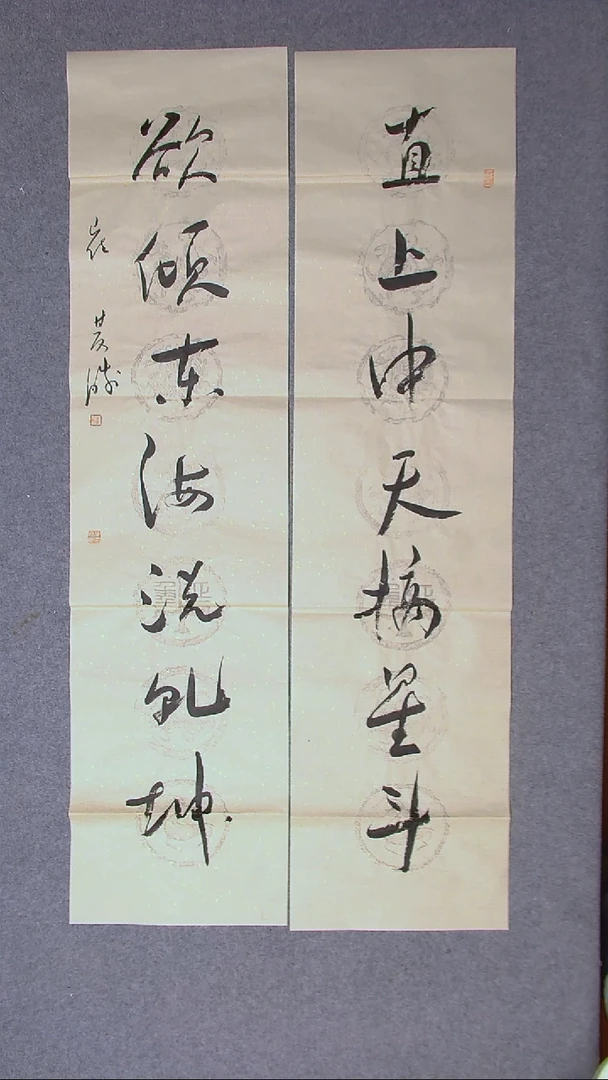 直上中天摘星斗
欲倾东海洗乾坤